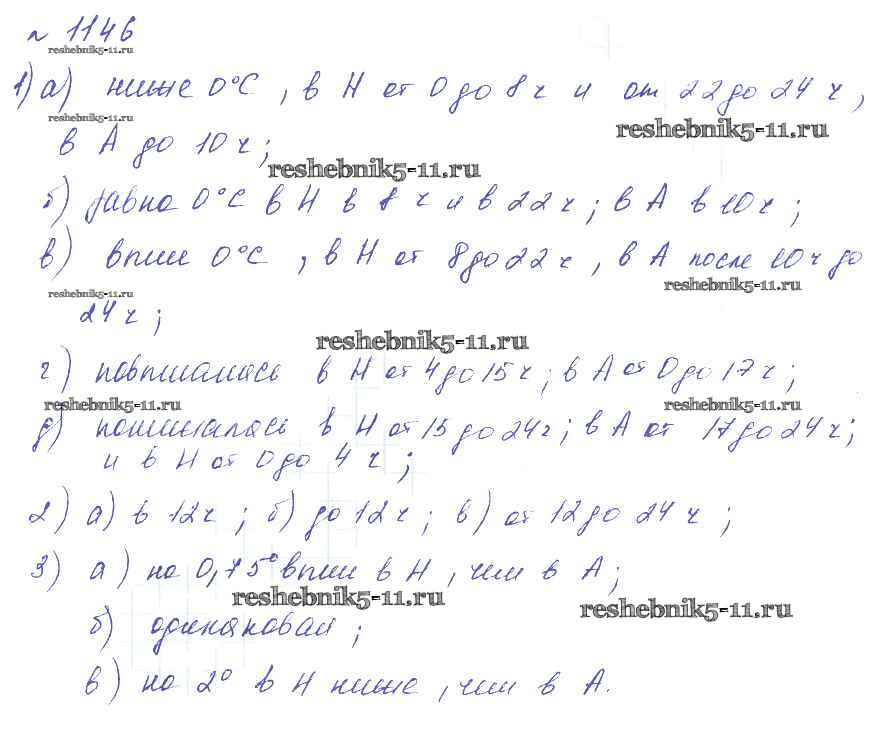 № 1146
reshebnik5-11.ru
1) а) ниже 0°C, в Н от 0 до 8 ч и от 22 до 24 ч,
reshebnik5-11.ru
reshebnik5-11.ru
в А до 10 ч;
reshebnik5-11.ru
б) равно 0°C в Н в 8 ч и в 22 ч; в А в 10 ч;
в) выше 0°C, в Н от 8 до 22 ч, в А после 10 ч до
reshebnik5-11.ru
reshebnik5-11.ru
24 ч;
reshebnik5-11.ru
г) повышалась в Н от 4 до 15 ч; в А от 0 до 17 ч;
reshebnik5-11.ru
reshebnik5-11.ru
д) понижалась в Н от 15 до 24 ч; в А от 17 до 24 ч;
и в Н от 0 до 4 ч;
2) а) в 12 ч; б) до 12 ч; в) от 12 до 24 ч;
3) а) на 0,75° выше в Н, чем в А;
reshebnik5-11.ru
reshebnik5-11.ru
б) одинаковая;
в) на 2° в Н ниже, чем в А.